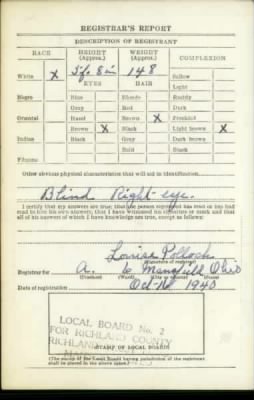 REGISTRAR'S REPORT
DESCRIPTION OF REGISTRANT
RACE HEIGHT (Approx.) WEIGHT (Approx.) COMPLEXION
White X 5 ft 8 in 148 Sallow
Light
EYES HAIR
Negro Blue Blonde Ruddy
Gray Red Dark
Oriental Hazel Brown X Freckled
Brown X Black Light brown X
Indian Black Gray Dark brown
Bald Black
Filipino
Other obvious physical characteristics that will aid in identification
Blind Right-eye.
I certify that my answers are true; that the person registered has read or has had
read to him his own answers; that I have witnessed his signature or mark and that
all of his answers of which I have knowledge are true, except as follows:
Louise Pollock
(Signature of registrar)
Registrar for A. 6 Mansfield Ohio
Date of registration Oct 1940
LOCAL BOARD No. 2
FOR RICHLAND COUNTY
RICHLAND
STAMP OF LOCAL BOARD
(The stamp of the Local Board having jurisdiction of the registrant
shall be placed in the above space.)